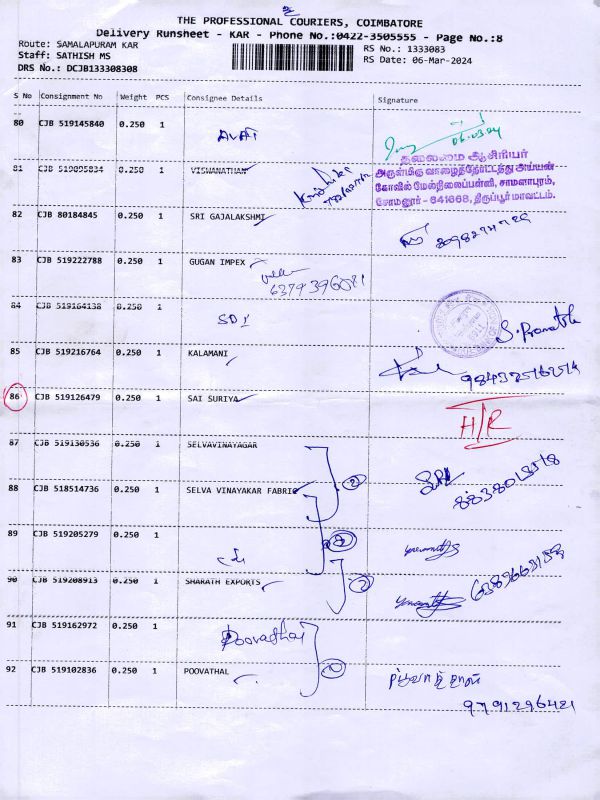 THE PROFESSIONAL COURIERS, COIMBATORE
Delivery Runsheet - KAR - Phone No.:0422-3505555 - Page No.:8
Route: SAMALAPURAM KAR
Staff: SATHISH MS
DRS No.: DCJB133308308
RS No.: 1333083
RS Date: 06-Mar-2024
S No Consignment No Weight PCS Consignee Details Signature
80 CJB 519145840 0.250 1
81 CJB 519095834 0.250 1 VISWANATHAN
தலைமை ஆசிரியர்
அருள்மிகு வாழைத்தோட்டத்து அய்யன்
கோவில் மேல்நிலைப்பள்ளி, சாமளாபுரம்,
சோமனூர் - 641668, திருப்பூர் மாவட்டம்.
82 CJB 80184845 0.250 1 SRI GAJALAKSHMI
83 CJB 519222788 0.250 1 GUGAN IMPEX
6379396081
84 CJB 519164138 0.250 1
85 CJB 519216764 0.250 1 KALAMANI
86 CJB 519126479 0.250 1 SAI SURIYA H/R
87 CJB 519130536 0.250 1 SELVAVINAYAGAR
88 CJB 518514736 0.250 1 SELVA VINAYAKAR FABRIC
89 CJB 519205279 0.250 1
90 CJB 519208913 0.250 1 SHARATH EXPORTS
91 CJB 519162972 0.250 1 Poovathal
92 CJB 519102836 0.250 1 POOVATHAL
9791296421